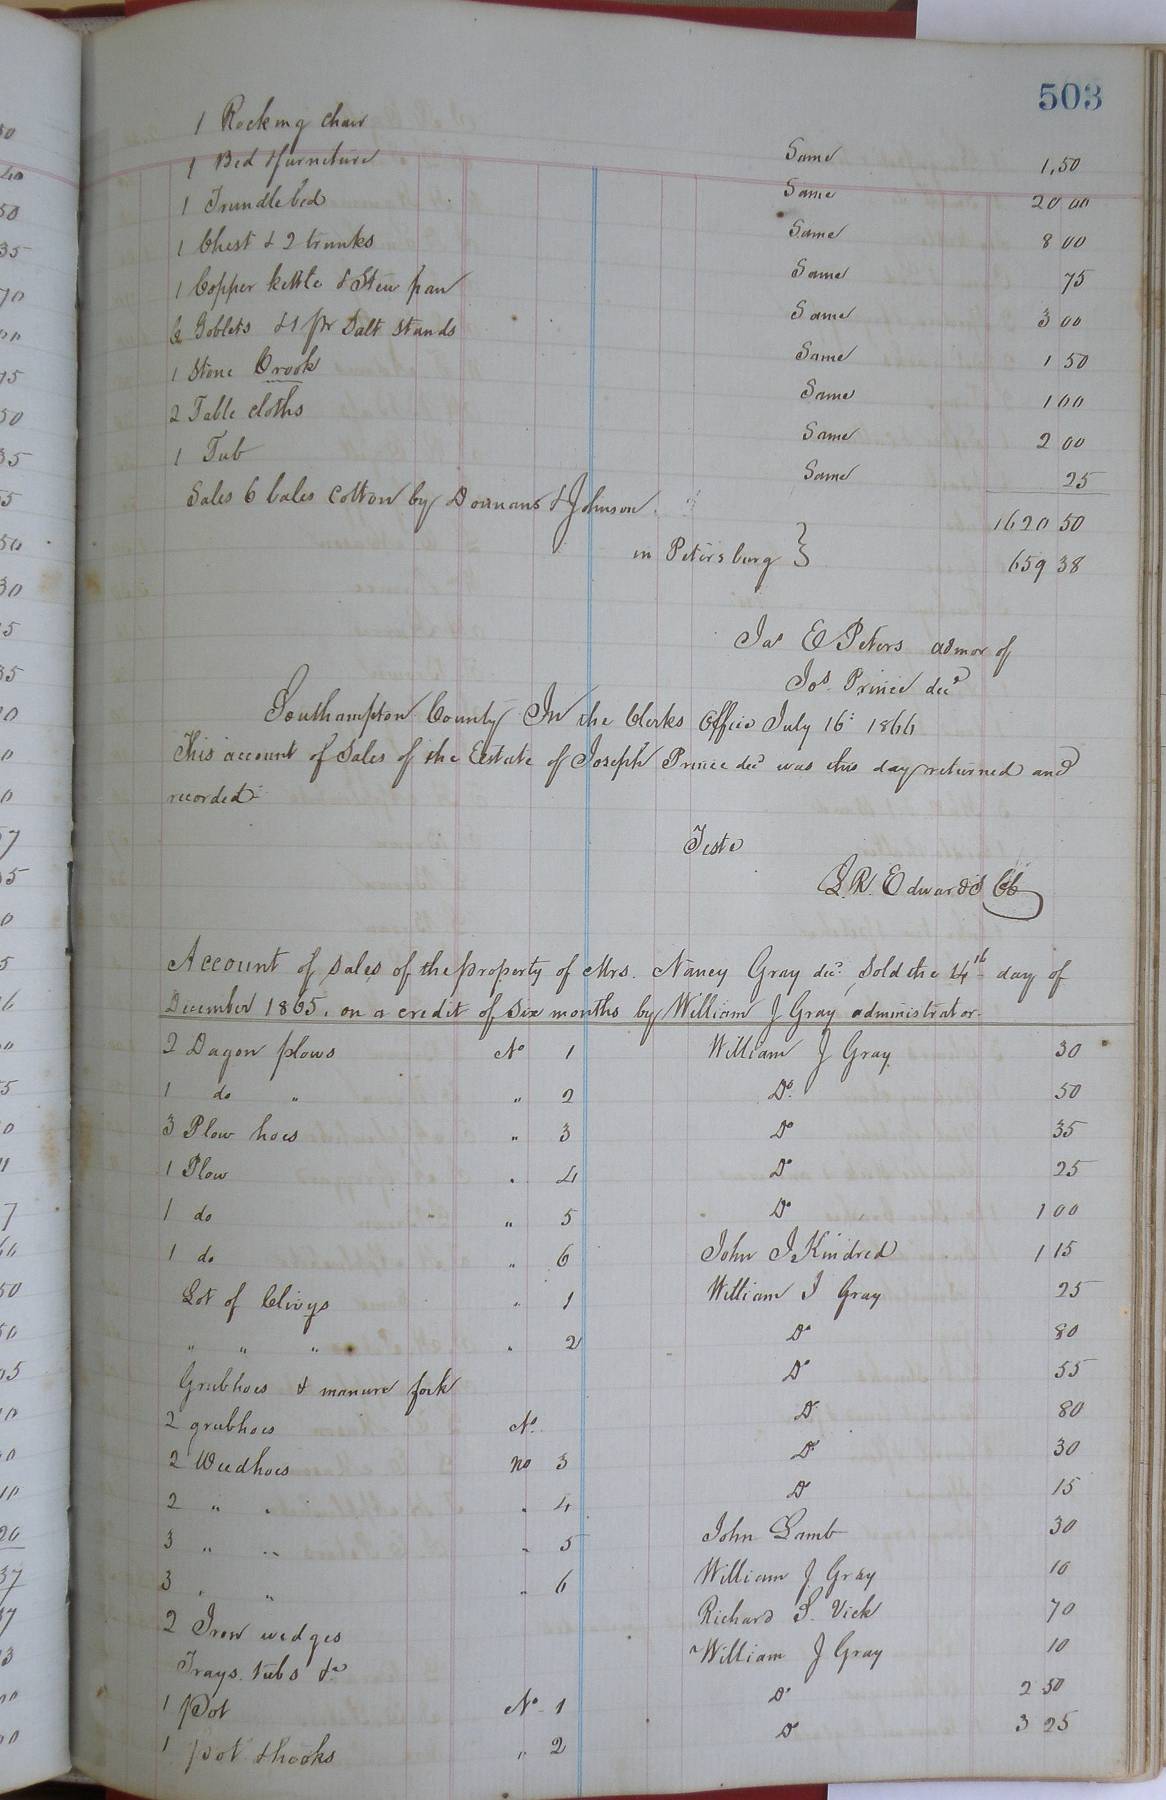 503
1 Rocking chair Same 1,50
1 Bed & furniture Same 20 00
1 Trundle bed Same 8 00
1 Chest & 2 trunks Same 75
1 Copper kettle & Stew pan Same 3 00
6 Goblets & 1 pr Salt Stands Same 1 50
1 Stone Crook Same 1 00
2 Table cloths Same 2 00
1 Tub Same 25
1620 50
Sales 6 bales Cotton by & Johnson
in Petersburg } 659 38
Jas E Peters admor of
Jos. Prince decd
Southampton County In the Clerks Office July 16: 1866
This account of Sales of the Estate of Joseph Prince decd was this day returned and
recorded
Teste
L. R. Edwards Cl
Account of sales of the property of Mrs. Nancy Gray decd. Sold the 14th day of
December 1865, on a credit of six months by William J Gray administrator.
2 Dagon plows No 1 William J Gray 30
1 do " " 2 Do. 50
3 Plow hoes " 3 Do 35
1 Plow " 4 Do 25
1 do " 5 Do 1 00
1 do " 6 John J Kindred 1 15
Lot of Clivys " 1 William J Gray 25
" " " " 2 Do 80
Grubhoes & manure fork Do 55
2 grubhoes No. Do 80
2 Weedhoes No 3 Do 30
2 " " " 4 Do 15
3 " " " 5 John Lamb 30
3 " " " 6 William J. Gray 10
2 Iron wedges Richard S. Vick 70
Trays. tubs &c William J Gray 10
1 Pot No 1 Do 2 50
1 pot & hooks " 2 Do 3 25